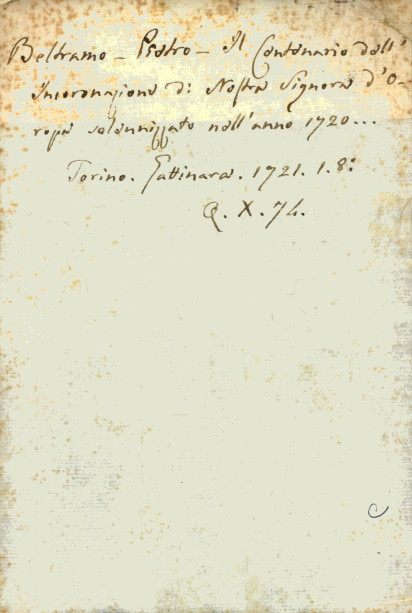 Beltramo - Pietro - Il Centenario dell'
Incoronazione di Nostra Signora d'O-
ropa solennizzato nell'anno 1720...
Torino. Gattinara. 1721. 1.8º
Q. X. 74.
C